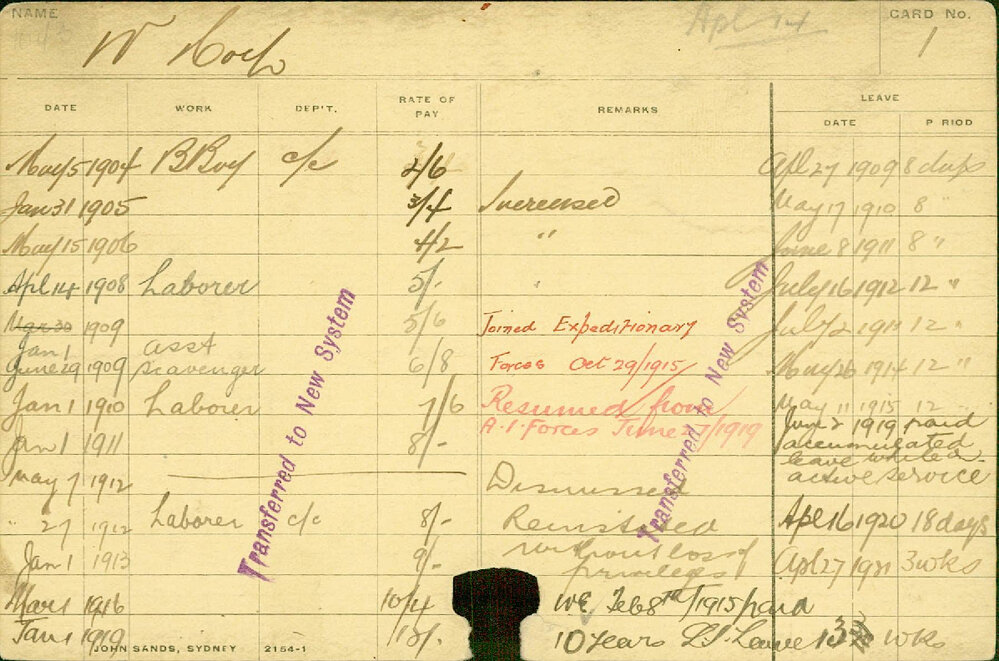 NAME CARD No.
W Apl 14 1
DATE WORK DEP'T. RATE OF PAY REMARKS LEAVE
DATE P RIOD
May 5 1904 B Boy c/c 2/6 Apl 27 1909 8 days
Jan 31 1905 3/4 Increased May 17 1910 8 "
May 15 1906 4/2 " June 8 1911 8 "
Apl 14 1908 Laborer 5/- " July 16 1912 12 "
Mar 30 1909 5/6 Joined Expeditionary July 2 12 "
Jan 1
June 29 1909 asst Scavenger 6/8 Forces Oct 29/1915 May 26 1914 12 "
Jan 1 1910 Laborer 7/6 Resumed from May 11 1915 12 "
Jan 1 1911 8/- A.I. Forces June 27/1919 June 2 1919 paid
accumulated
leave whilst on
active service
May 7 1912 Dismissed
" 27 1912 Laborer c/c 8/- Reinstated Apl 16 1920 18 days
without loss of
Jan 1 1913 9/- privileges Apl 27 1921 3 wks
Mar 1 1916 10/4 WE. Feb 8TH/1915 paid
Jan 1 1919 10 Years L.S. Leave 13 wks
Transferred to New System
Transferred to New System
JOHN SANDS, SYDNEY 2154-1